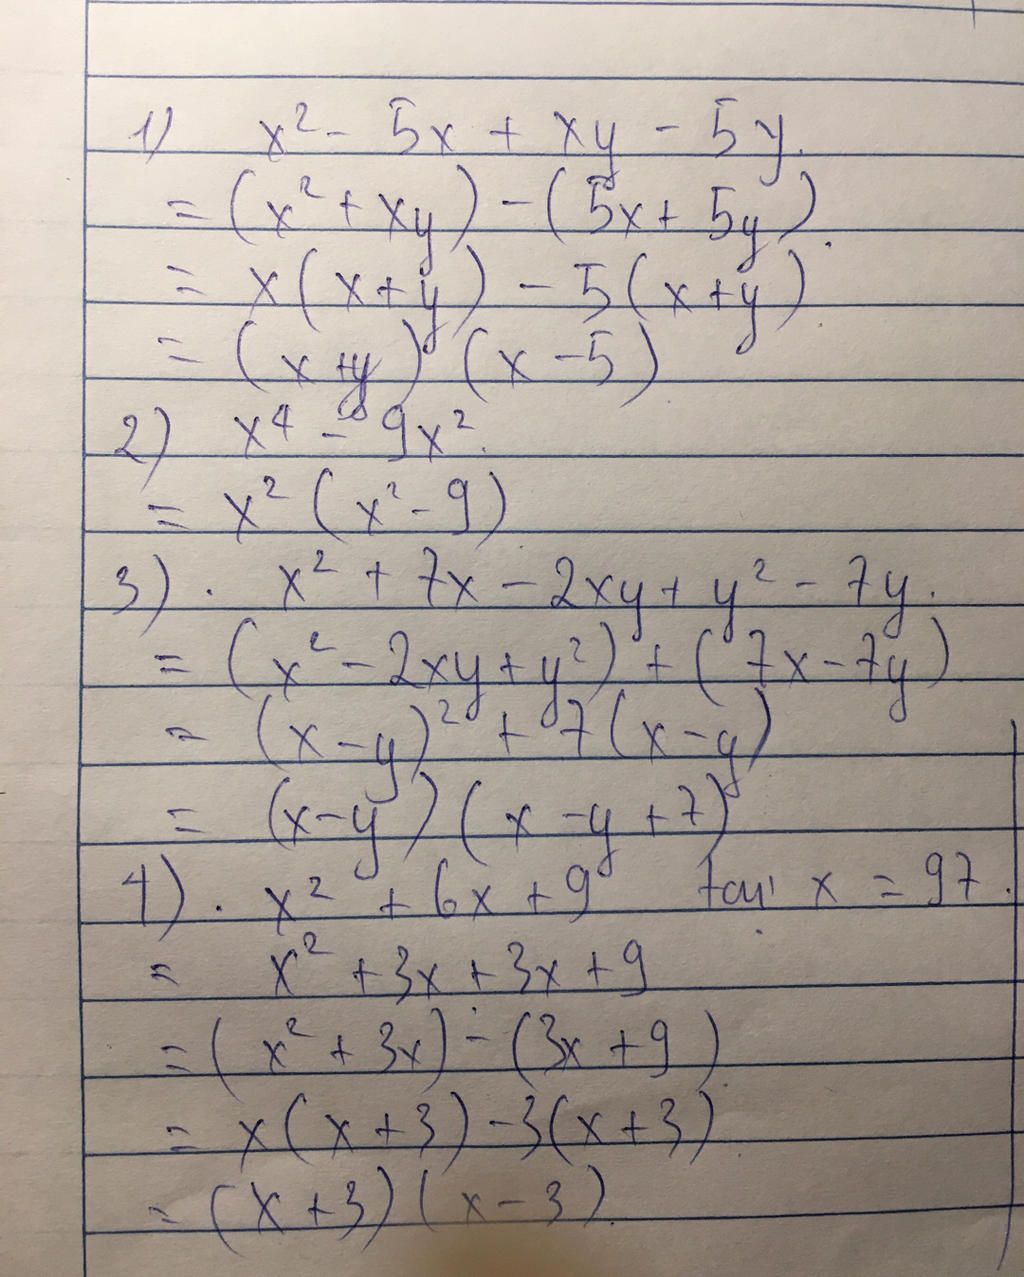 1) x² - 5x + xy - 5y.
= (x² + xy) - (5x + 5y).
= x(x+y) - 5(x+y)
= (x+y) (x-5)
2) x⁴ - 9x².
= x² (x² - 9)
3). x² + 7x - 2xy + y² - 7y.
= (x² - 2xy + y²) + (7x - 7y)
= (x-y)² + 7(x-y)
= (x-y) (x-y+7)
4). x² + 6x + 9 tại x = 97.
= x² + 3x + 3x + 9
= (x² + 3x) - (3x + 9)
= x(x+3) - 3(x+3)
= (x+3)(x-3).